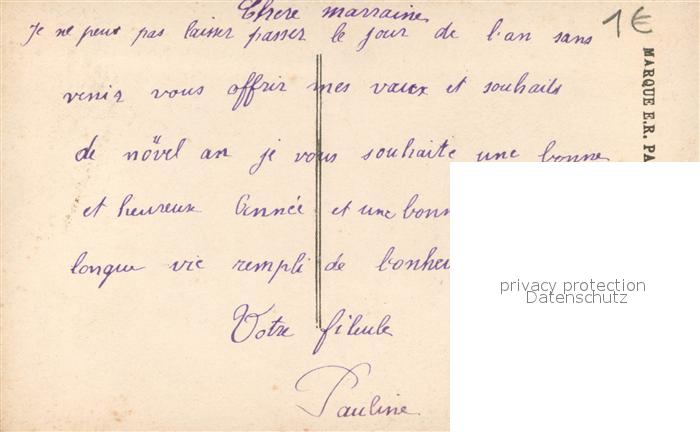 Chere marraine
Je ne peux pas laisser passer le jour de l'an sans
venir vous offrir mes vaux et souhaits
de növel an je vous souhaite une bonne
et heureux année et une bonn
longue vie rempli de bonheu
Votre fileule
Pauline
1€
MARQUE E.R. PA
privacy protection
Datenschutz